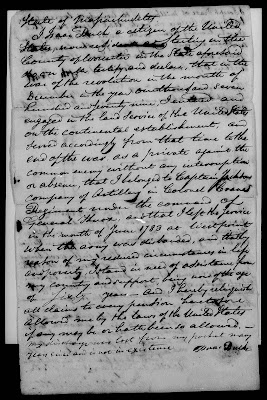 State of Massachusetts
I Isaac a citizen of the United
States, resident
County of Worcester in the State aforesaid
upon oath testify and declare, that in the
war of the revolution in the month of
December in the year one thousand seven
hundred and seventy nine, I entered and
engaged in the land service of the United States
on the continental establishment, and
served accordingly from that time to the
end of the war as a private against the
common enemy without any interruption
or absence, that I belonged to Captain
company of Artillery in Colonel Cranes
Regiment under the command of
General Knox and that I left the service
in the month of June 1783 at Westpoint
when the army was disbanded, and that by
reason of my reduced circumstances in life
and poverty I stand in need of assistance from
my country and support, being now of the age
of sixty years — And I hereby relinquish
all claims to every pension heretofore
allowed me by the laws of the United States
if any may be or hath been so allowed, —
my discharge was lost from my pocket many
years since and is not in existence
Isaac